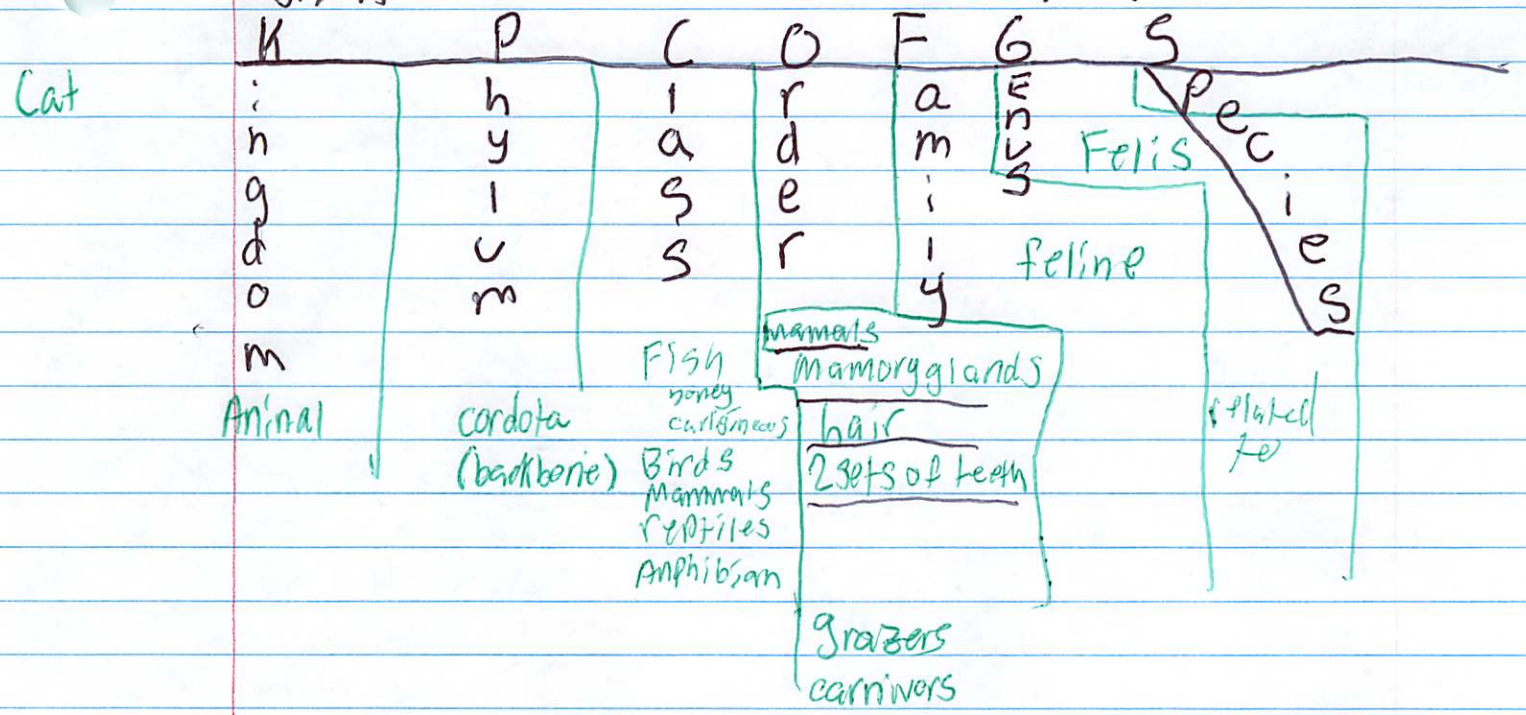 K P C O F G S
Kingdom
Phylum
Class
Order
Family
GEnus
SPecies
Cat
Aninal
cordota
(backbone)
Fish
boney
Birds
Mammals
reptiles
Amphibian
mamals
mamoryglands
hair
2 sets of teeth
grazers
carnivors
feline
Felis
related
to